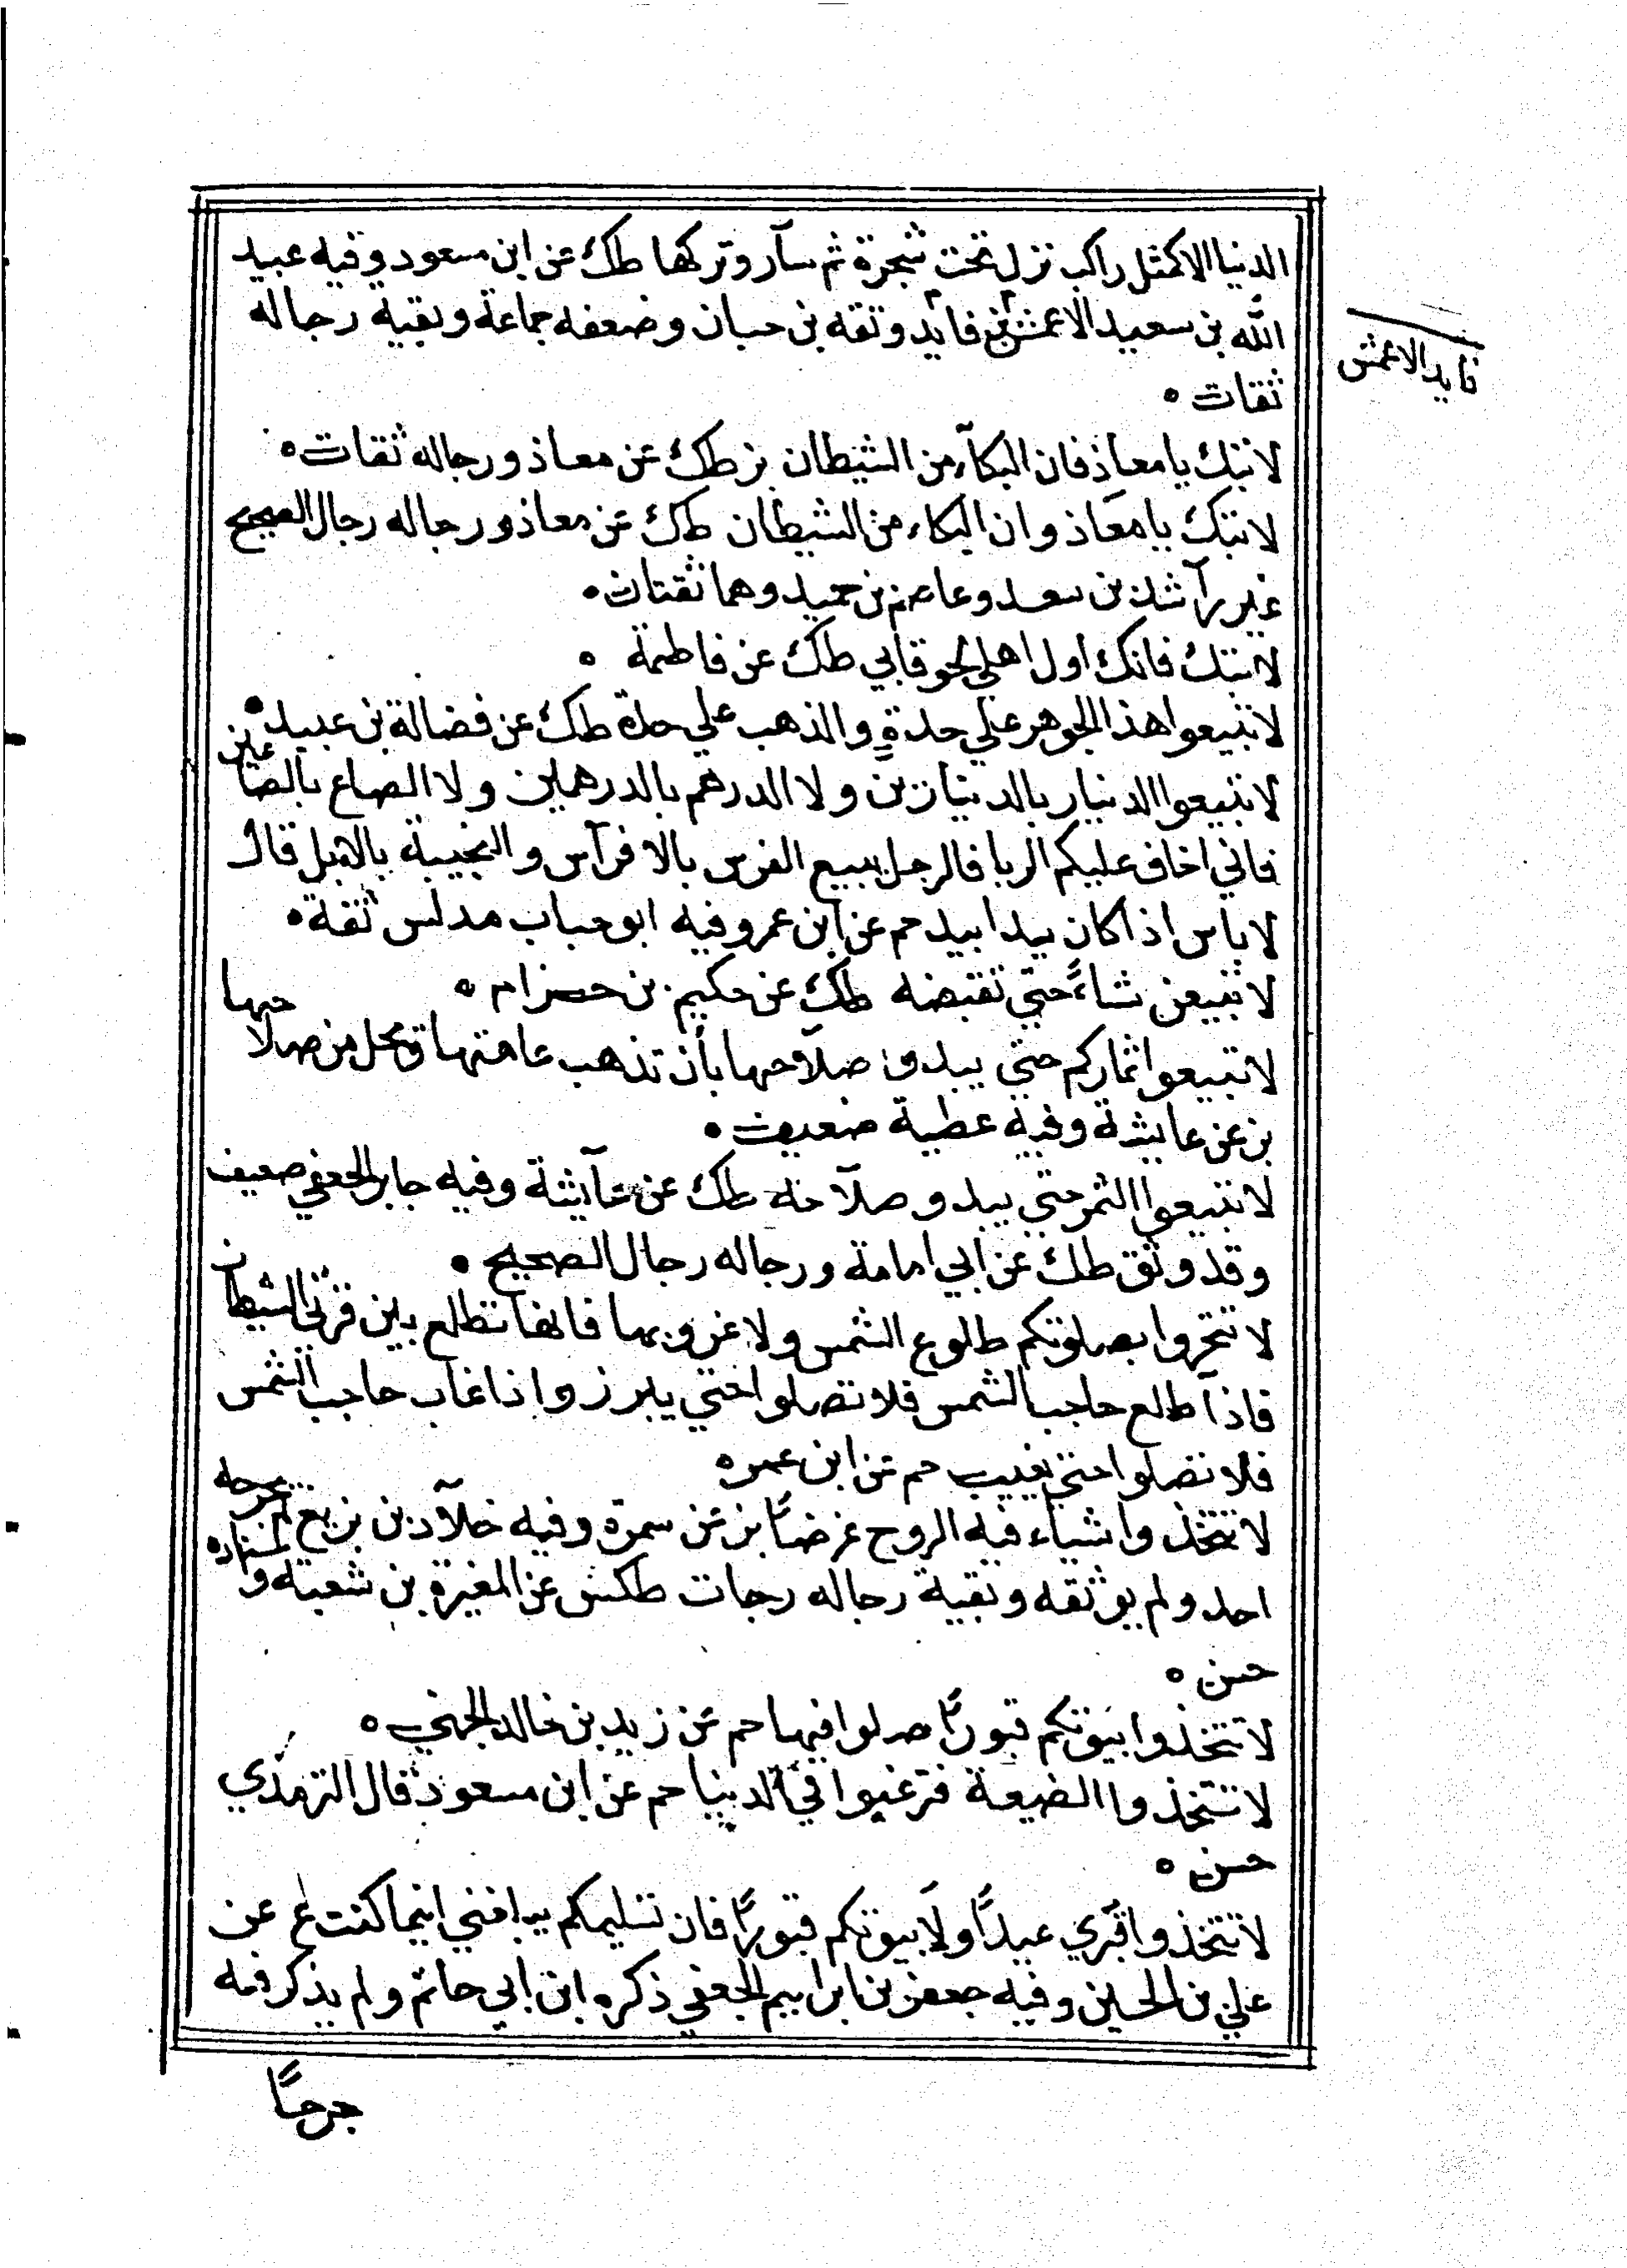 الدنيا الاكمثل راكب نزل تحت شجرة ثم سآر وتركها طك عن ابن مسعود وفيه عبيد
الله بن سعيد الاعمش بن فايد وثقه بن حبان وضعفه جماعة وبقيه رجاله
قايد الاعمش
ثقات ه
لا تبك يا معاذ فان البكآء من الشيطان بز طك عن معاذ ورجاله ثقات ه
لا تبك يا معاذ وان البكاء من الشيطان طك عن معاذ ورجاله رجال الصحيح
غير رآشد بن سعد وعاصم بن حميد وهما ثقتان ه
لا تبك فانك اول اهلي لحوقا بي طك عن فاطمة ه
لا تبيعوا هذا الجوهر علي حدةٍ والذهب علي حدة طك عن فضالة بن عبيد ه
لا تبيعوا الدنيار بالدنيازين ولا الدرهم بالدرهمين ولا الصاع بالصاعين
فاني اخاف عليكم الربا فالرجل يبيع الفرس بالافرآس والنجيبة بالابل قال
لا باس اذا كان يدا بيد حم عن ابن عمر وفيه ابو حباب مدلس ثقة ه
لا تبيعن شاءً حتي تقبضه طك عن حكيم بن حزام ه
لا تبيعوا ثماركم حتي يبدوا صلآحها بأن تذهب عاهتها و يحل من صلاحها
بز عن عايشة وفيه عطية ضعيف ه
لا تبيعوا الثمر حتي يبدو صلآحه طك عن عآئشة وفيه جابر الجعفي ضعيف
وقد وثق طك عن ابي امامة ورجاله رجال الصحيح ه
لا تتحروا بصلوتكم طلوع الشمس ولا غروبها فانها تطلع بين قرني الشيطان
فاذآ طلع حاجب الشمس فلا تصلوا حتي يبرز واذا غاب حاجب الشمس
فلا تصلوا حتي يغيب حم عن ابن عمر ه
لا تتخذوا شياء فيه الروح غرضًا بز عن سمرة وفيه خلآد بن بزيع لم يجرحه
احد ولم يوثقه وبقية رجاله رجات طكس عن المغيرة بن شعبة واسناده
حسن ه
لا تتخذوا بيوتكم قبورًا صلوا فيها حم عن زيد بن خالد الجهني ه
لا تتخذوا الضيعة فترغبوا في الدنيا حم عن ابن مسعود قال الترمذي
حسن ه
لا تتخذوا قبري عيدًا ولا بيوتكم قبورًا فان تسليمكم يبلغني اينما كنت ع عن
علي بن الحسين وفيه جعفر بن ابراهيم الجعفي ذكره ابن ابي حاتم ولم يذكر فيه
جرحًا